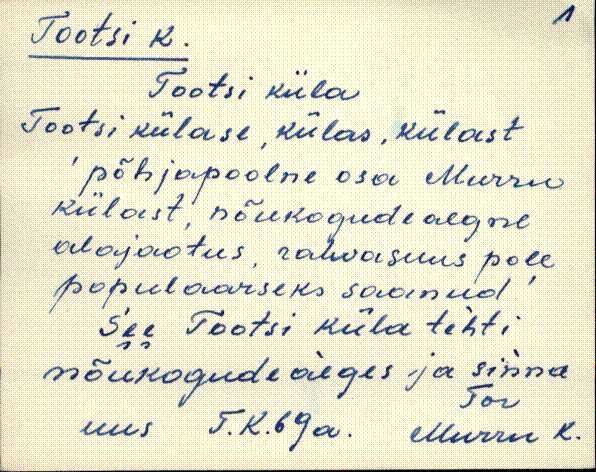 1
Tootsi K.
Tootsi küla
Tootsi külase, külas, külast
'põhjapoolne osa Murru
külast, nõukogudeaegne
alajaotus, rahvasuus pole
populaarseks saanud'
S'ee Tootsi küla tèhti
nõukogudeàeges ja sìnna
Tor
uus T.K. 69 a. Murru K.